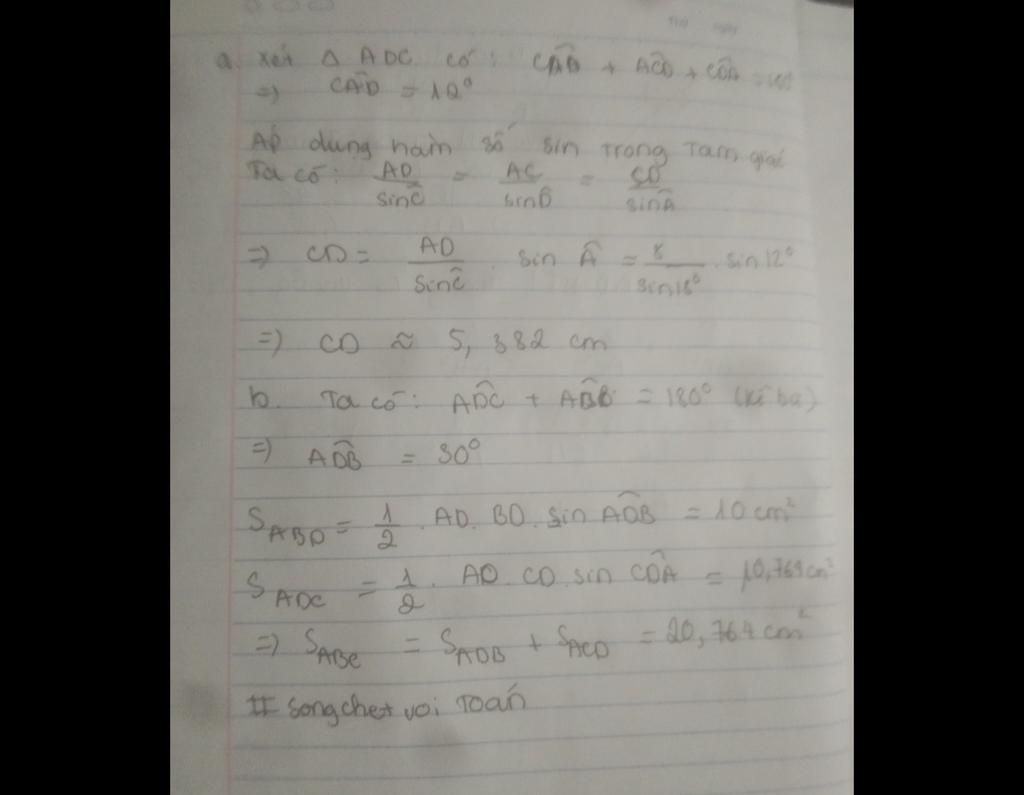 a. xét Δ ADC có: CÂD + AĈD + CD̂A = 180
=> CÂD = 12°
Áp dụng hàm số sin trong Tam giác
Ta có: AD/sinĈ = AC/sinD̂ = CD/sinÂ
=> CD = AD/sinĈ . sin Â = 8/sin18° . sin12°
=> CD ≈ 5,382 cm
b. Ta có: AD̂C + AD̂B = 180° (kề bù)
=> AD̂B = 30°
S_ABD = 1/2 . AD. BD. sin AD̂B = 10 cm²
S_ADC = 1/2 . AD. CD. sin CD̂A = 10,764 cm²
=> S_ABC = S_ADB + S_ACD = 20,764 cm²
# Songchet voi Toán